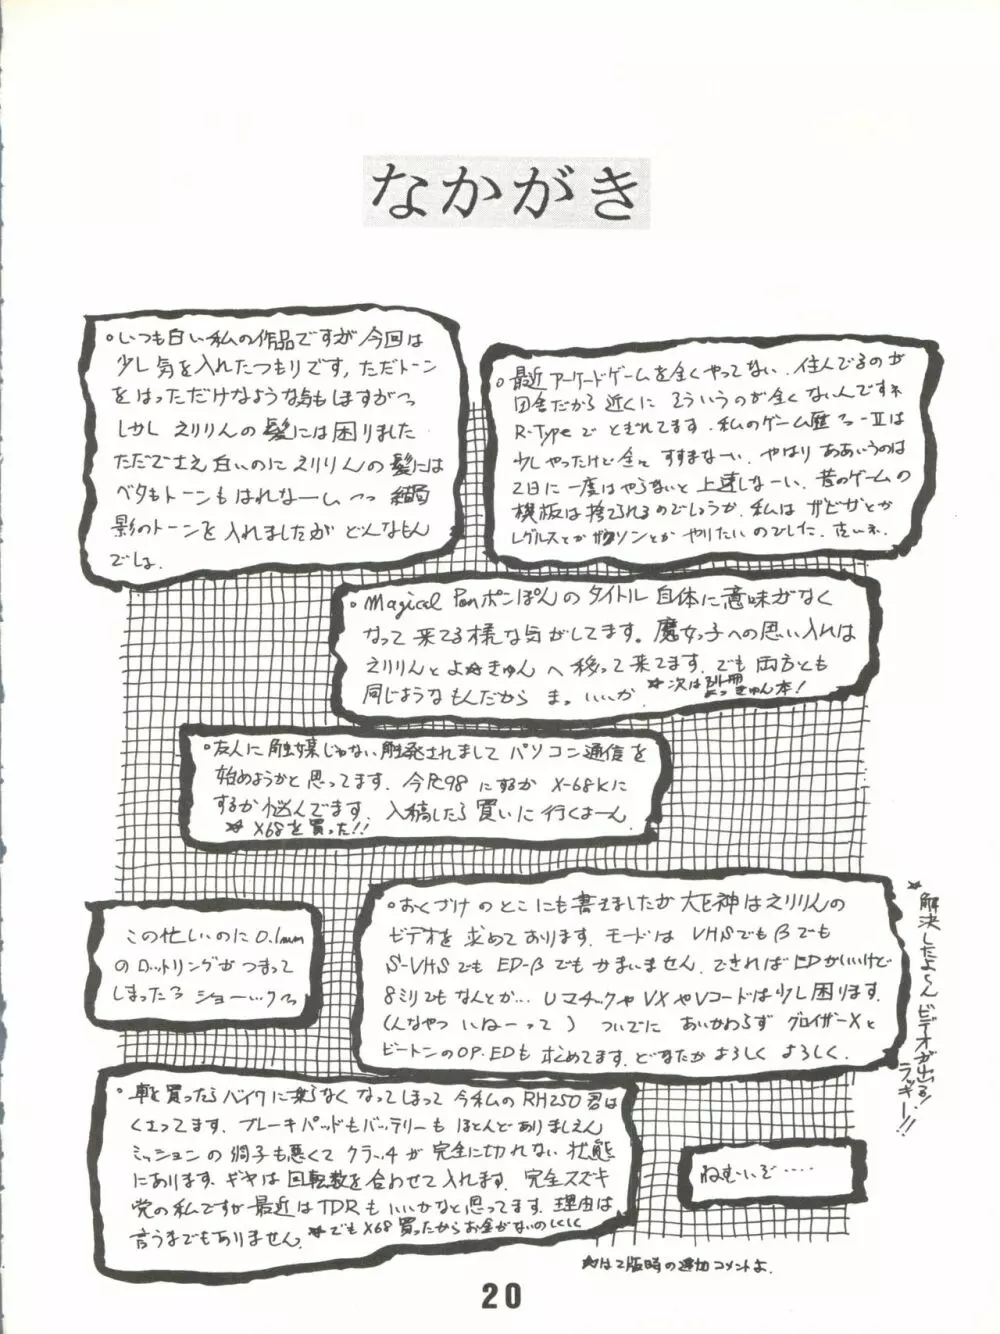 なかがき
。いつも白い私の作品ですが今回は
少し気を入れたつもりです。ただトーン
をはっただけなような気もしますがっ
しかし えりりんの髪には困りました
ただでさえ白いのにえりりんの髪には
ベタもトーンもはれなーい っっ 結局
影のトーンを入れましたが どんなもん
でしょ
。最近アーケードゲームを全くやってない、住んでるのが
田舎だから近くに そういうのが全くないんですネ
R-Typeで とぎれてます。私のゲーム歴
少しやったけど全く すすまなーい、やはり ああいうのは
2日に一度はやらないと上達しなーい、昔のゲームの
模板は捨てられるのでしょうか、私は ザビガとか
レグルスとか ザクソンとか やりたいのでした、古いネ、
。Magical Ponポンぽんのタイトル自体に意味がなく
なって来てる様な気がしてます。魔女っ子への思い入れは
えりりんとよ☆きゅんへ移って来てます、でも両方とも
同じようなもんだから ま。いいか
☆次は別冊よっきゅん本!
。友人に触媒じゃない触発されまして パソコン通信を
始めようかと思ってます。今尺98にするか X-68Kに
するか悩んでます、入稿したら買いに行くよーん
☆X68を買った!!
この忙しいのに0.1mm
のロットリングがつまって
しまったっ ショーックっ
。おくづけのとこにも書きましたが 大巨神はえりりんの
ビデオを求めております。モードは VHSでもβでも
S-VHSでも ED-βでもかまいません、できればEDがいいけど
8ミリでもなんとか… UマチックやVXやVコードは少し困ります。
(んなやつ いねーって) ついでに あいかわらず グロイザーXと
ビートンのOP.EDも求めてます、どなたか よろしく よろしく.
☆解決したよ〜ん ビデオが出る! ラッキー!!
。車を買ったらバイクに乗らなくなってしまって 今私のRH250君は
くさってます、ブレーキパッドもバッテリーも ほとんどありましぇん
ミッションの調子も悪くて クラッチが 完全に切れない状態
にあります。ギヤは回転数を合わせて入れます、完全スズキ
党の私ですが最近はTDRもいいかなと思ってます。理由は
言うまでもありません、☆でもX68買ったからお金がないのしくしく
ねむいぞ……
☆は2版時の追加コメントよ.
20